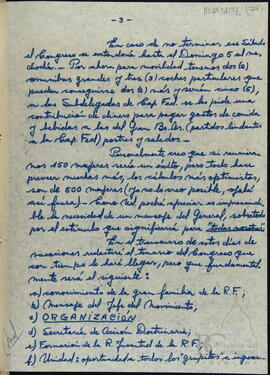 - 3 -
En caso de no terminar ese Sábado
el Congreso se extenderá hasta el Domingo 5 al me-
diodía. Por ahora para movilidad, tenemos dos (2)
omnibus grandes y tres (3) coches particulares que
pueden conseguirse dos (2) más y serán cinco (5),
a las Subdelegadas de Cap. Fed. se les pide una
contribución de dinero para pagar gastos de comida
y bebidas a las del Gran Bs. As. (partidos lindantes
a la Cap. Fed.) postres y saludos.
Personalmente creo que si reunimos
unas 150 mujeres será un éxito, pero todo hace
prever muchas más, los cálculos más optimistas,
son de 500 mujeres (yo no lo creo posible, ojalá
así fuera). Como Ud. podrá apreciar es imprescindi-
ble la necesidad de un mensaje del General, sobre todo
por el estímulo que significará para todas nosotras
En el transcurso de estos días de
reuniones redactaré el temario del Congreso que
con tiempo le haré llegar, pero que fundamental-
mente será el siguiente:
a) conocimiento de la gran familia de la R.F.;
b) Mensaje del Jefe del Movimiento;
c) ORGANIZACIÓN
d) Secretaría de Acción Doctrinaria;
e) Formación de la R. Juventud de la R.F.;
f) Unidad: oportunidad a todos los "grupitos" a ingresar